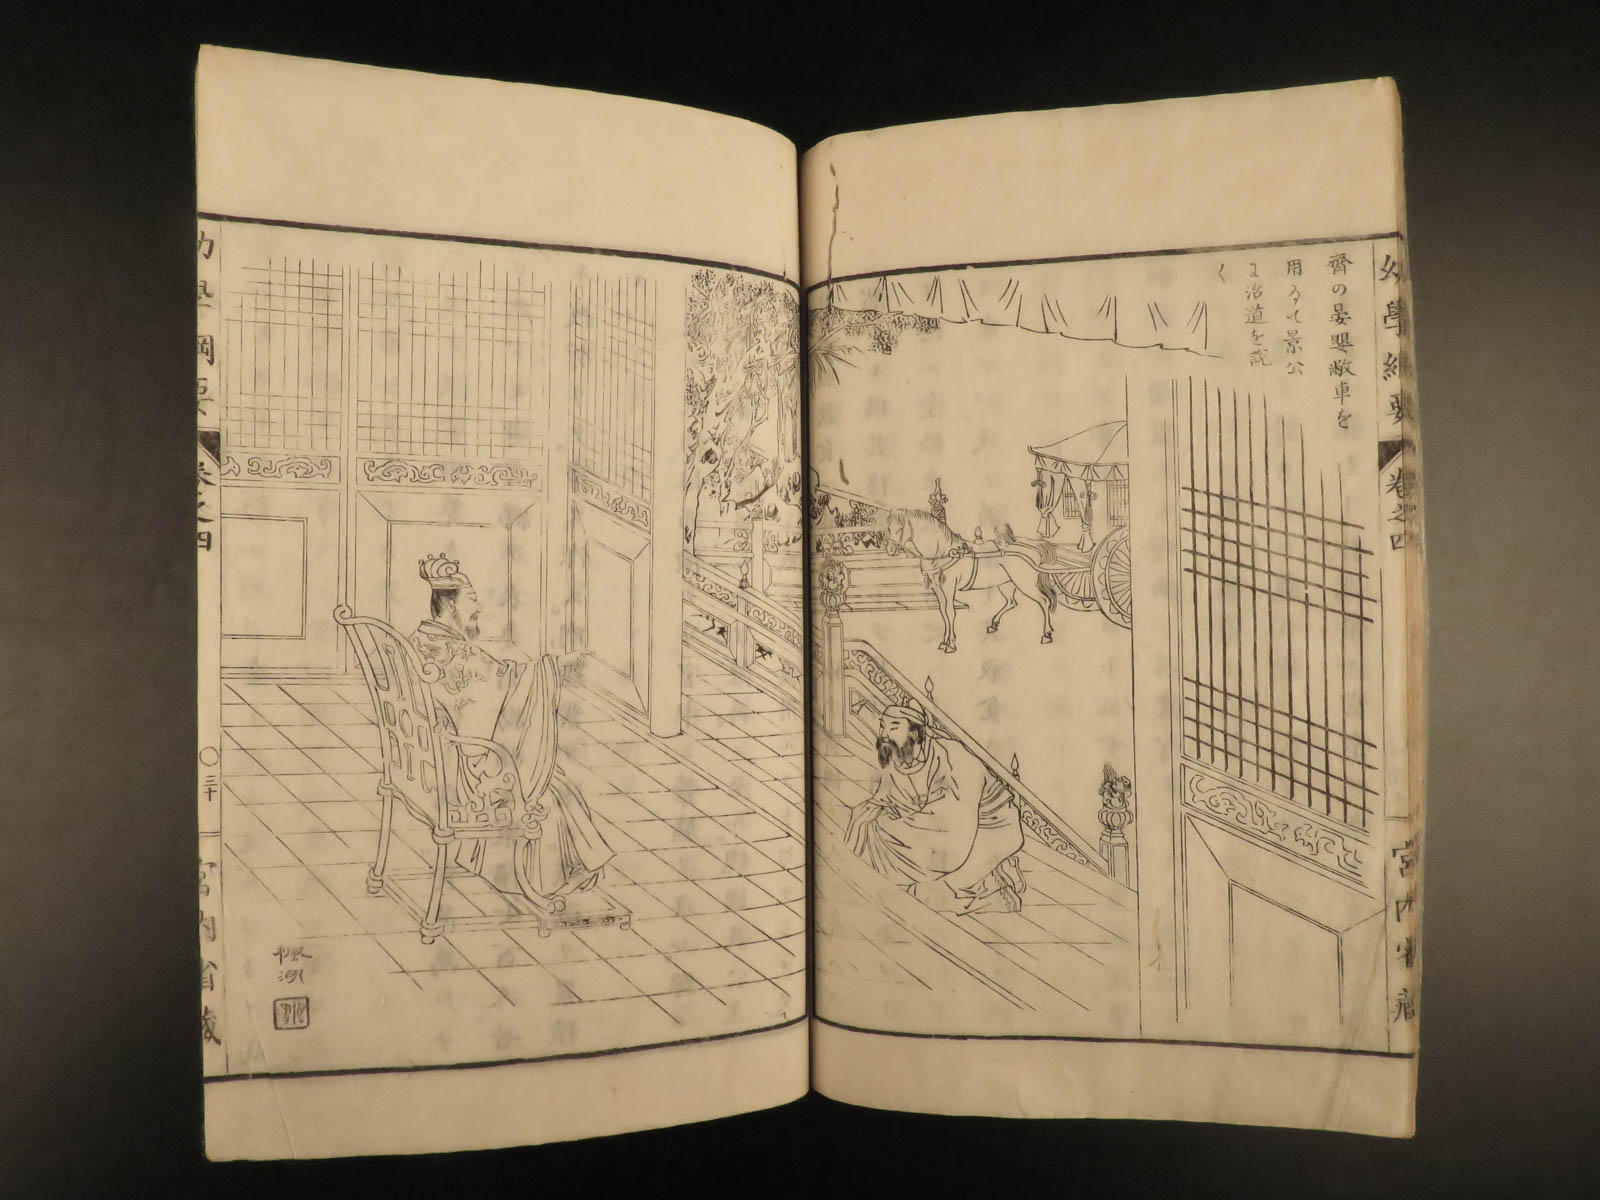 幼學綱要
卷之四
宮內省藏
齊の晏嬰敝車を
用ゐて景公
に治道を說
く
幼學綱要
卷之四
〇三十
宮內省藏
楓湖